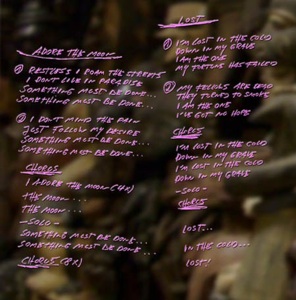 ADORE THE MOON
① RESTLESS I ROAM THE STREETS
I DON'T LIVE IN PARADISE
SOMETHING MUST BE DONE...
SOMETHING MUST BE DONE...
② I DON'T MIND THE PAIN
JUST FOLLOW MY DESIRE
SOMETHING MUST BE DONE...
SOMETHING MUST BE DONE...
CHORUS
I ADORE THE MOON (4X)
THE MOON...
THE MOON...
—SOLO—
SOMETHING MUST BE DONE...
SOMETHING MUST BE DONE...
CHORUS (8X)
LOST
① I'M LOST IN THE COLD
DOWN IN MY GRAVE
I AM THE ONE
MY TORTURE HAS FAILED
② MY FELLOWS ARE DEAD
THEY TURNED TO SMOKE
I AM THE ONE
I'VE GOT NO HOPE
CHORUS
I'M LOST IN THE COLD
DOWN IN MY GRAVE
I'M LOST IN THE COLD
DOWN IN MY GRAVE
—SOLO—
CHORUS
LOST...
IN THE COLD...
LOST!